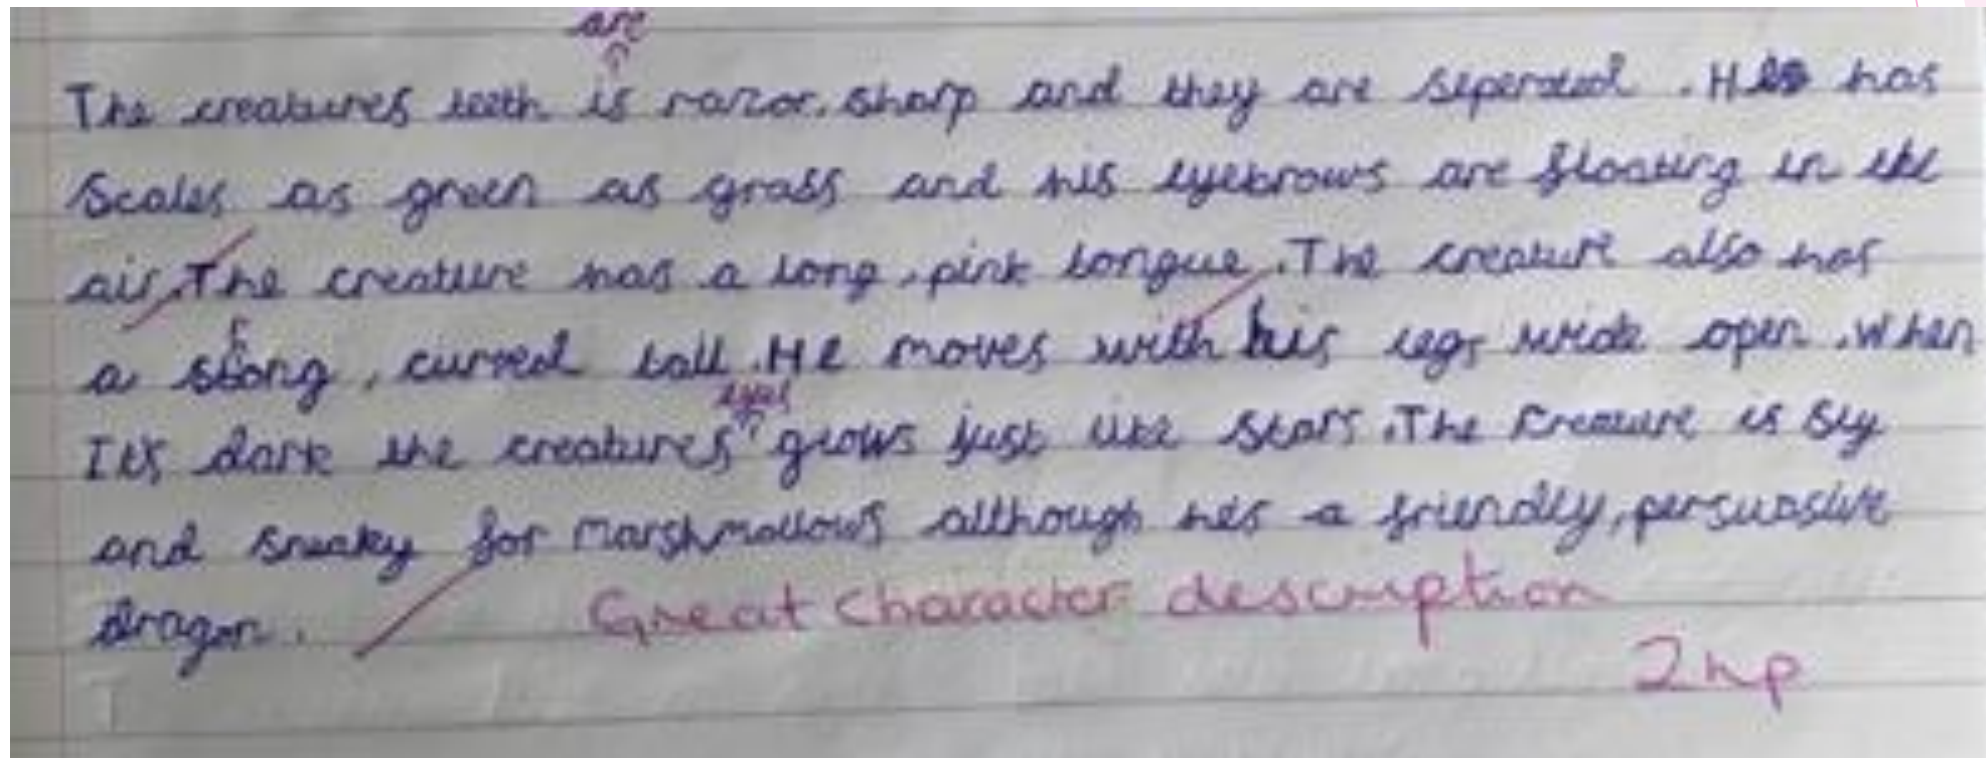 are
The creatures teeth is razor sharp and they are seperated. He has
Scales as green as grass and his eyebrows are floating in the
air. The creature has a long, pink tongue. The creature also has
r
a stong, curved tail. He moves with his legs wide open. When
eyes
It's dark the creatures glows just like stars. The creature is sly
and sneaky for marshmallows although he's a friendly, persuasive
dragon. Great character description
2hp